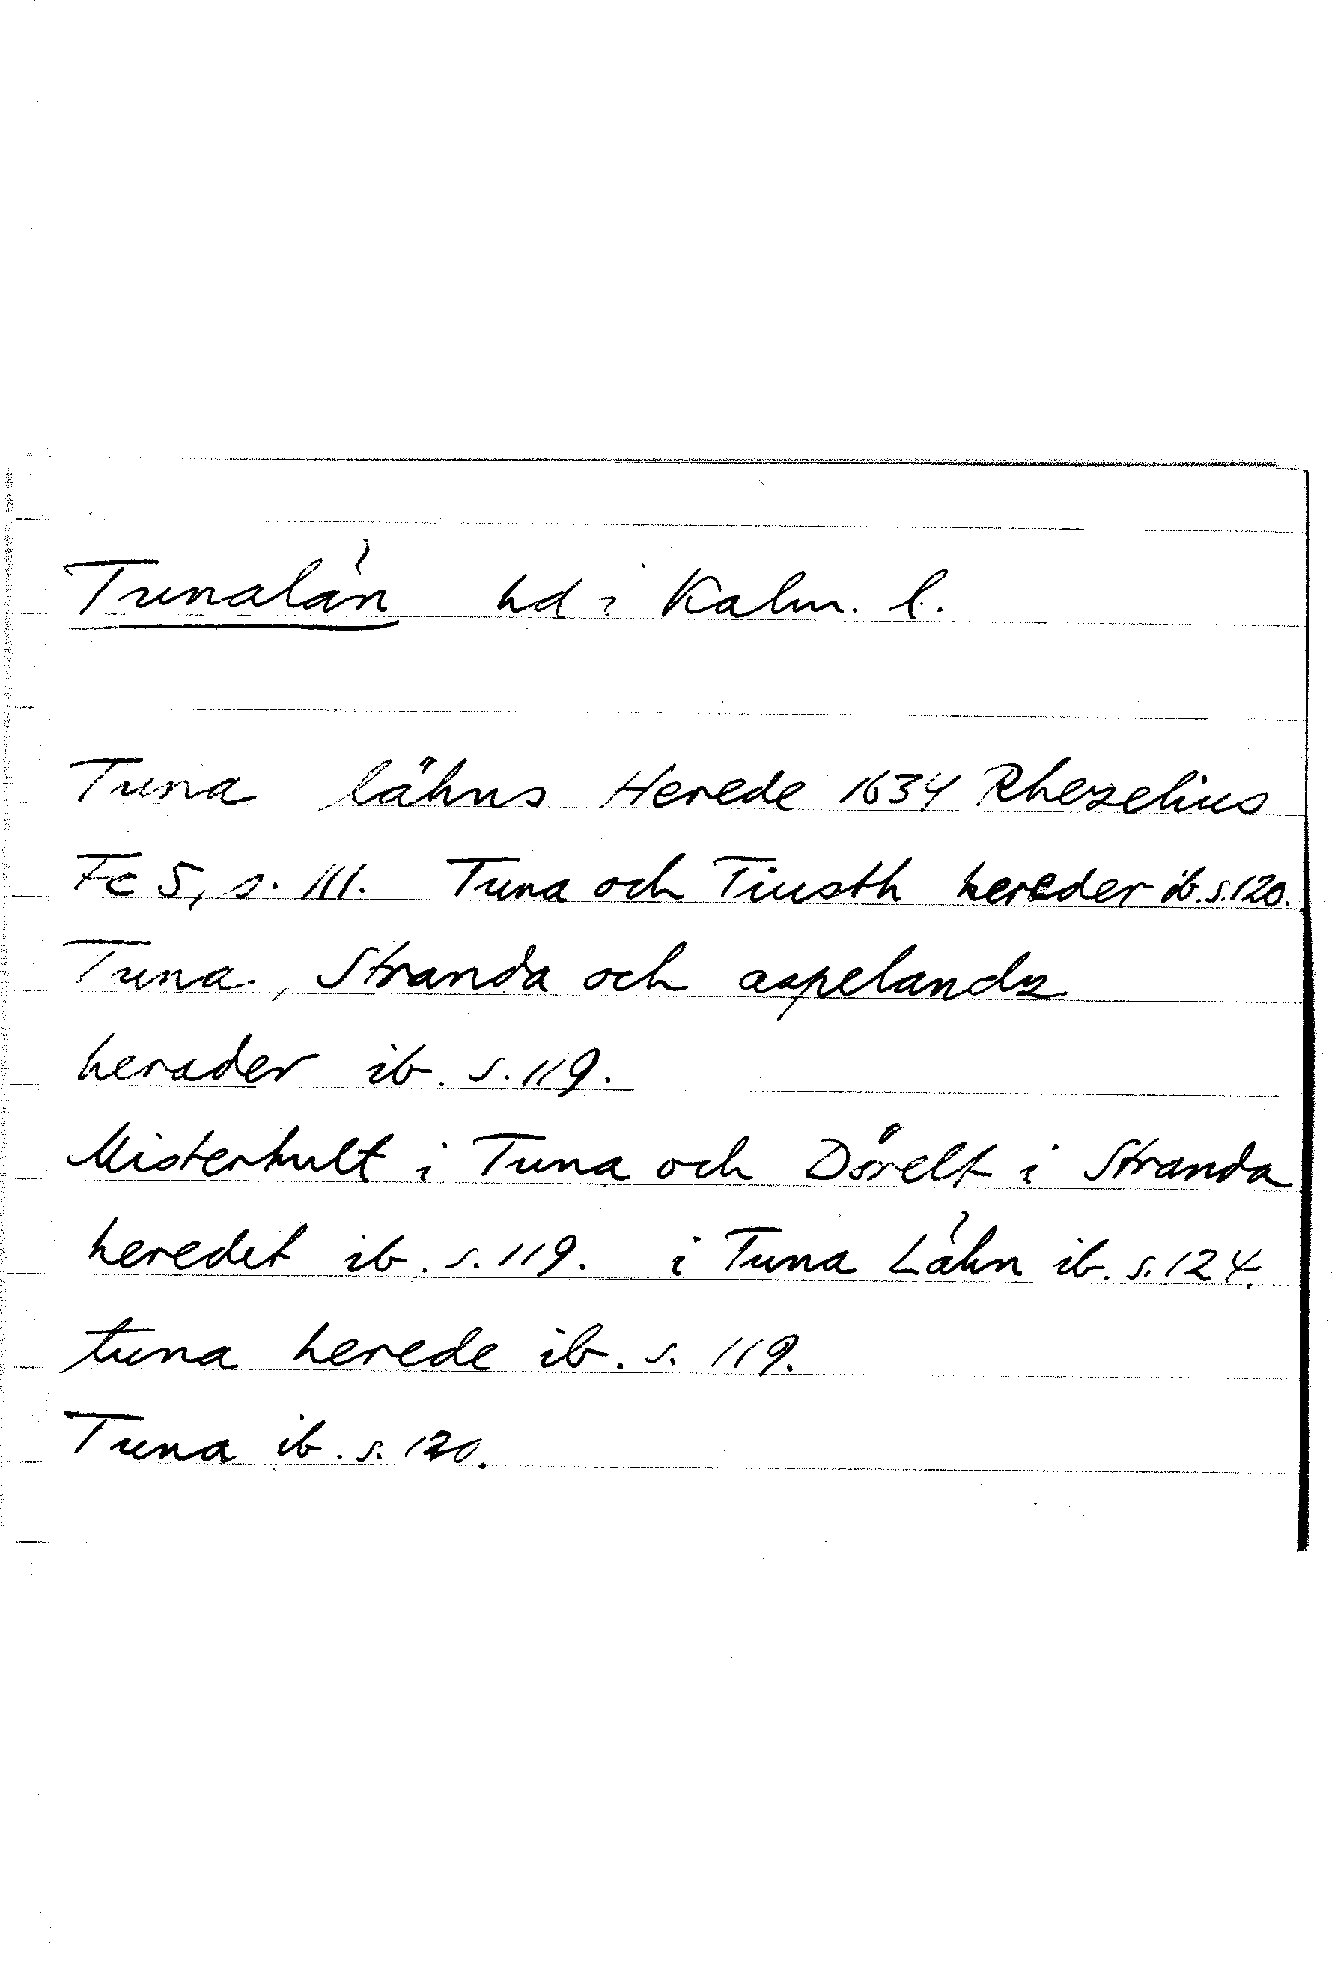 Tunalän hd i Kalm. l.
Tuna lähns Herede 1634 Rhezelius
Fc 5, s. 111. Tuna och Tiusth hereder ib. s. 120.
Tuna., Stranda och aspelandz
herader ib. s. 119.
Misterhult i Tuna och Dörelt i Stranda
heredet ib. s. 119. i Tuna Lähn ib. s. 124.
tuna herede ib. s. 119.
Tuna ib. s. 120.